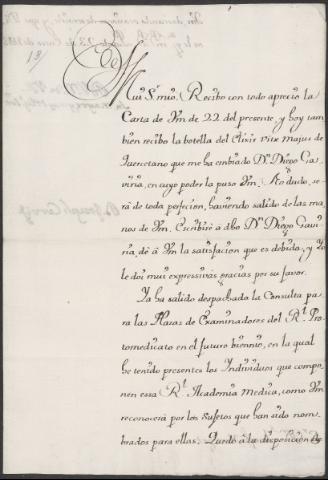 13/
Mui S.r mio. Recibo con todo aprecio la
Carta de Vm de 22 del presente, y hoy tam
bien recibo la botella del Elixir vitæ majus de
Quercetano que me ha embiado D.n Diego Ga
viria, en cuyo poder la puso Vm. No dudo, se
rá de toda perfecion, haviendo salido de las ma
nos de Vm. Escribiré a dho D.n Diego Gavi
ria, dé á Vm la satisfacion que es debida, y Yo
le doi mui expressivas gracias por su favor.
Ya ha salido despachada la Consulta pa
ra las Plazas de Examinadores del R.l Pro
tomedicato en el futuro biennio, en la qual
he tenido presentes los Individuos que compo
nen essa R.l Academia Medica, como Vm
reconocerá por los Sujetos que han sido nom
brados para ellas. Quedo á la disposicion de